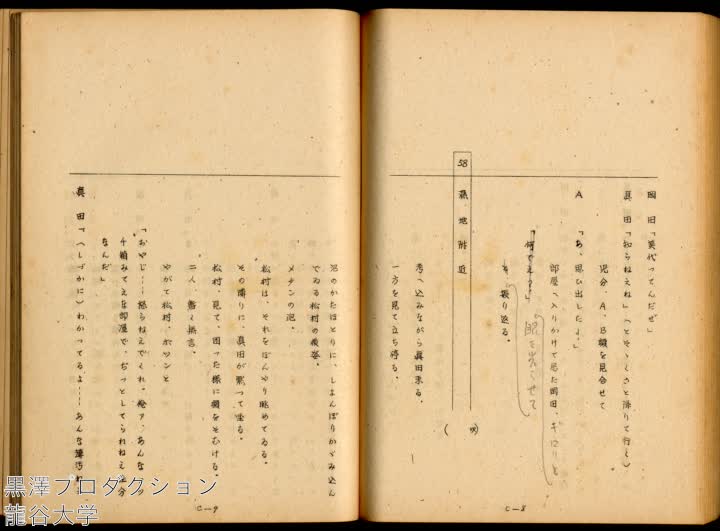 岡田「美代ってんだぜ」
眞田「知らねえね」(とそゝくさと降りて行く)
児分、A、B顔を見合せて
A「あ、思ひ出したよ、」
部屋へ入りかけて居た岡田、ギロリと
「何でえ?」
眼を光らせて
と、振り返る。
58 蘇地附近
考へ込みながら眞田来る。
一方を見て立ち停る。
C—8
沼のかたほとりに、しょんぼりかゞみ込ん
でゐる松村の後姿。
メタンの泡。
松村は、それをぼんやり眺めてゐる。
その隣りに、眞田が黙って坐る。
松村、見て、困った様に顔をそむける。
二人、暫く無言。
やがて松村、ポツンと
「おやじ……怒らねえでくれ。俺ァ、あんな
箱みてえな部屋で、ぢっとしてられねえ
なんだ」
眞田「(しづかに)わかってるよ……あんな薄汚ねえ
C—9
黒澤プロダクション
龍谷大学